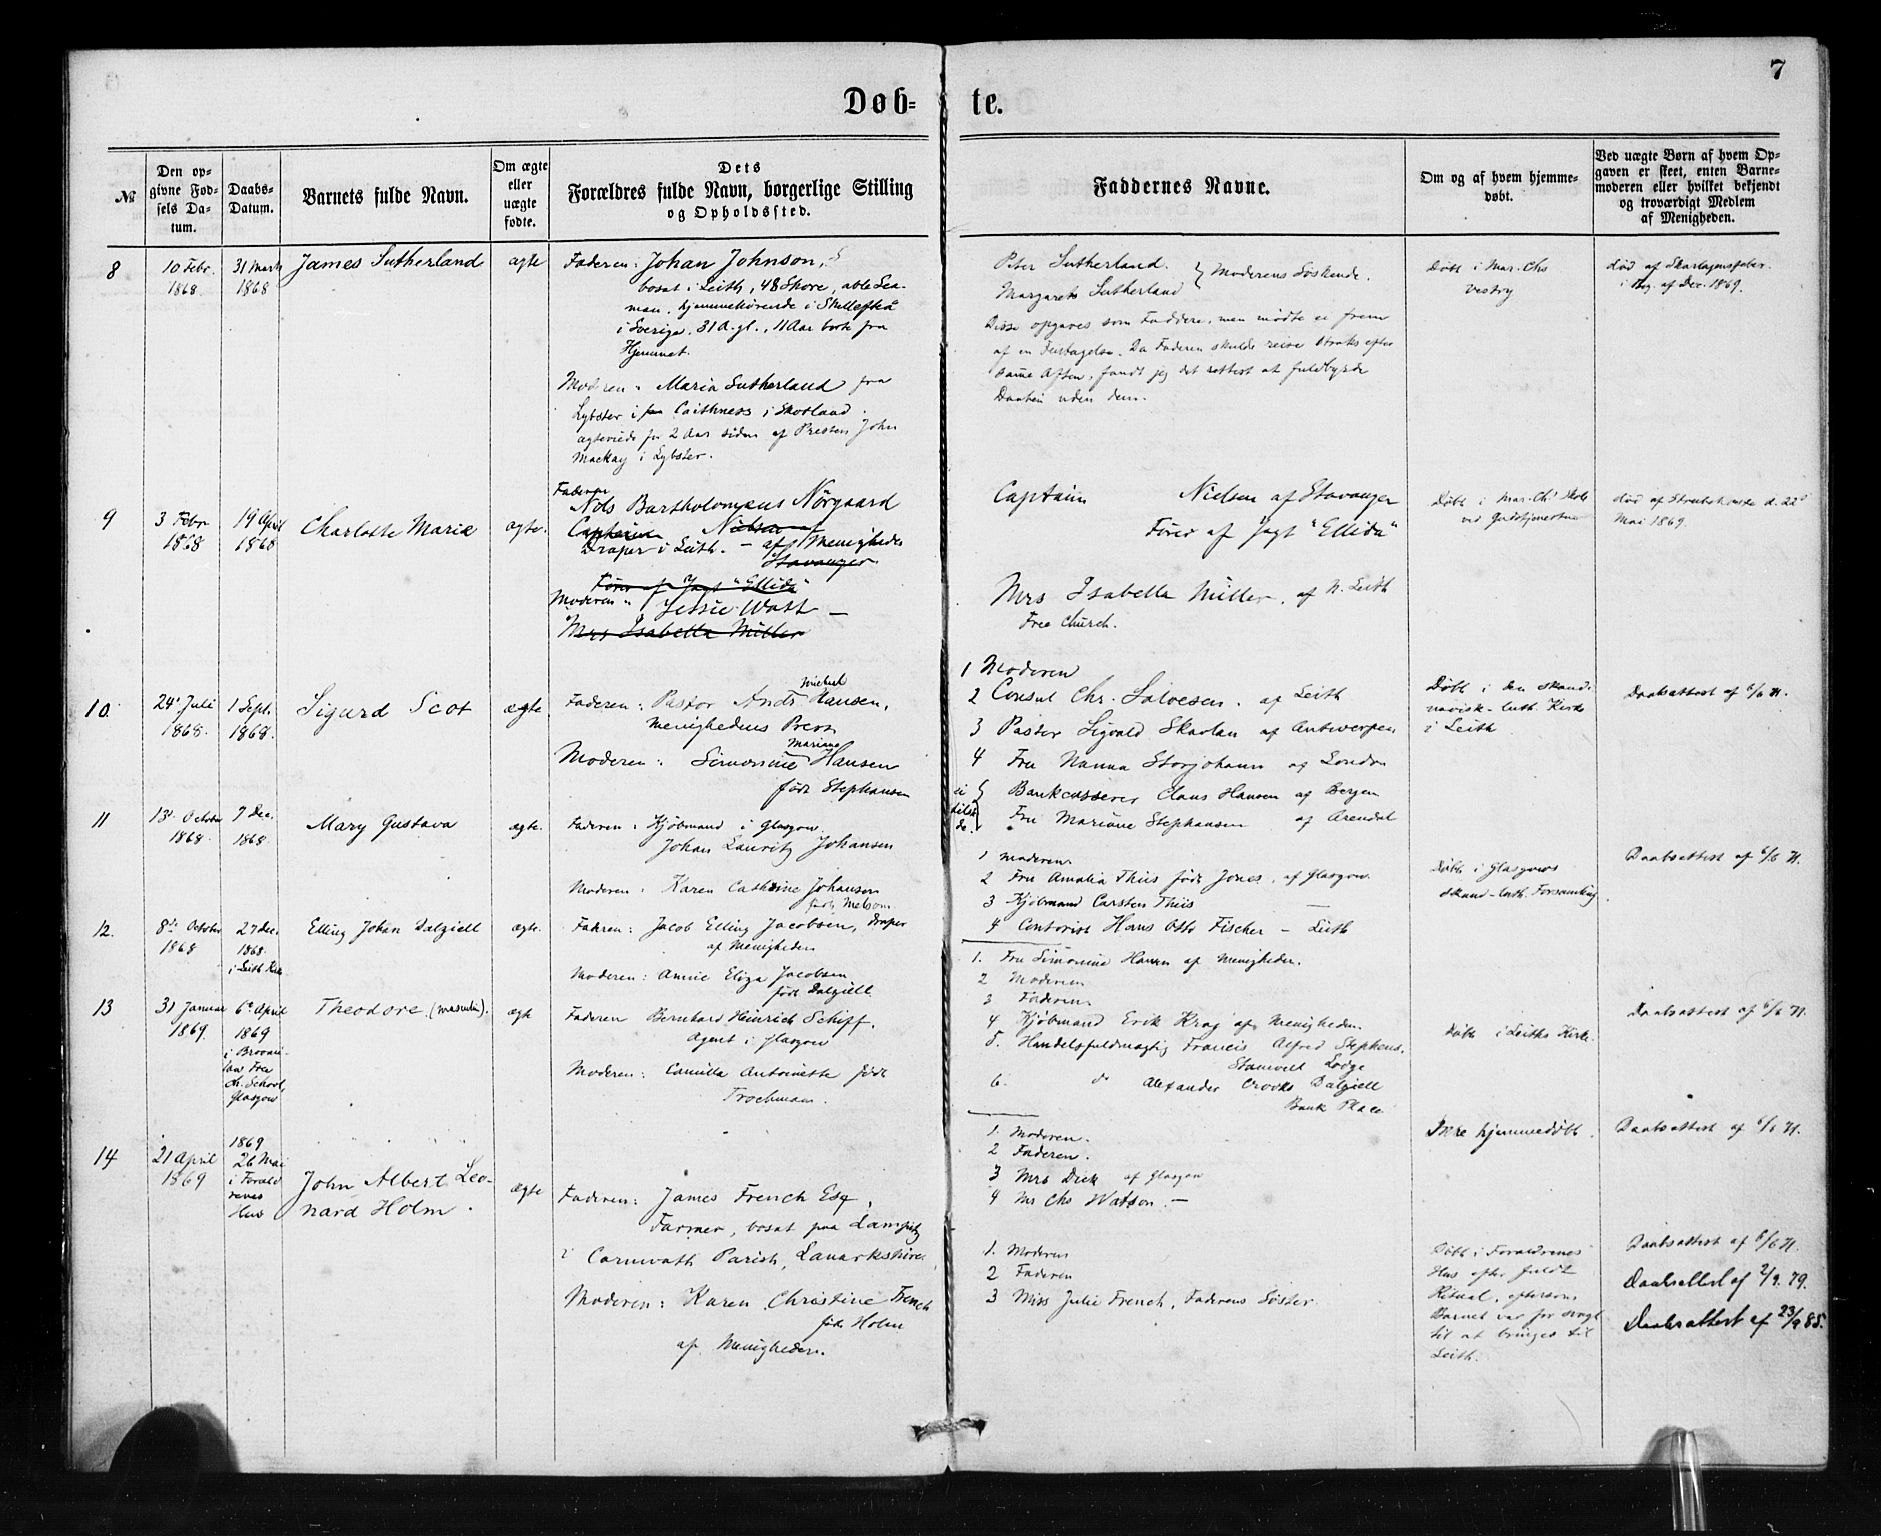 7
Døb- te.
№
Den op-
givne Fød-
sels Da-
tum.
Daabs-
Datum.
Barnets fulde Navn.
Om ægte
eller
uægte
fødte.
Dets
Forældres fulde Navn, borgerlige Stilling
og Opholdssted.
Faddernes Navne.
Om og af hvem hjemme-
døbt.
Ved uægte Børn af hvem Op-
gaven er skeet, enten Barne-
moderen eller hvilket bekjendt
og troværdigt Medlem
af Menigheden.
8
10 Febr.
1868
31 Marts
1868
James Sutherland
ægte
Faderen: Johan Johnson,
bosat i Leith, 48 Shore, able Sea-
man, hjemmehørende i Skellefteå
i Sverige, 31 A. gl., 11 Aar borte fra
Hjemmet.
Moderen: Maria Sutherland fra
Lybster i Caithness i Skotland.
ægteviede for 2 Aar siden af Presten John
Mackay i Lybster.
Peter Sutherland.
Margarets Sutherland } Moderens Søskende.
Disse opgaves som Faddere, men mødte ei frem
af en Feiltagelse. Da Faderen skulde reise straks efter
samme Aften, fandt jeg det rettest at fuldbyrde
Daaben uden dem.
Døbt i Mar. Chs
vestry
død af Skarlagensfeber
i Beg. af Dec. 1869.
9
3 Febr
1868
19 April
1868
Charlotte Marie
ægte.
Faderen
Nils Bartholomæus Nörgaard
Captain Nielsen af
Draper i Leith. — af Menigheden
Stavanger
Fører af Jagt "Ellida"
Moderen " Jessie Watt —
Mrs Isabella Müller
Captain Nielsen af Stavanger
Fører af Jagt "Ellida"
Mrs Isabella Müller, af N. Leith
Free Church.
Døbt i Mar. Ch
ved Gudstjenesten
død af Strubehoste d. 22
Mai 1869.
10.
24 Juli
1868.
1 Sept.
1868.
Sigurd Scot
ægte
Faderen: Pastor Andr Michael Hansen,
Menighedens Prest
Moderen: Simonine Mariane Hansen
født Stephansen
1 Moderen
2 Consul Chr. Salvesen. af Leith
3 Pastor Sigvald Skavlan af Antwerpen
4 Fru Nanna Storjohann af London
ei tilstede { Bankcasserer Claus Hansen af Bergen
Fru Mariane Stephansen af Arendal
Døbt i den skandi-
navisk-luth. Kirke
i Leith
Daabsattest af 6/6 71.
11
13 October
1868.
7 Dec.
1868
Mary Gustava
ægte.
Faderen: Kjøbmand i Glasgow
Johan Lauritz Johansen
Moderen: Karen Cathrine Johansen
født Melsom.
1 Moderen
2 Fru Amalia Thiis født Jones, af Glasgow
3 Kjøbmand Carsten Thiis
4 Contorist Hans Otto Fischer — Leith
Døbt i Glasgows
skand-luth. Forsamling
Daabsattest af 6/6 71.
12.
8de October
1868
27 Dec.
1868.
i Leith Kirke
Elling Johan Dalziell
ægte.
Faderen: Jacob Elling Jacobsen, Draper
af Menigheden
Moderen: Annie Eliza Jacobsen
født Dalziell
1. Fru Simonine Hansen af Menigheden.
2 Moderen
3 Faderen
4 Kjøbmand Erik Krag af Menigheden
5. Handelsfuldmægtig Francis Alfred Stephens,
Stanwell Lodge
6. do Alexander Crooks Dalziell
Bank Place
Døbt i Leiths Kirke.
Daabsattest af 6/6 71.
13
31 Januar
1869.
6te April
1869
i Broomi-
law Free
Ch. School,
Glasgow
Theodore. (masculin).
ægte
Faderen Bernhard Heinrich Schiff.
Agent i Glasgow
Moderen: Camilla Antoinette født
Trochmann.
1. Moderen.
2 Faderen.
3 Mrs Dick af Glasgow
4 Mr Chs Watson. —
Ikke hjemmedøbt.
Daabsattest af 6/6 71.
14
21 April
1869
1869
26 Mai
i Foræld
renes
Hus
John Albert Leo-
nard Holm.
ægte
Faderen: James French Esq,
Farmer, bosat paa Lampits
i Carnwath Parish, Lanarkshire.
Moderen: Karen Christine French
født Holm
af Menigheden.
1. Moderen
2 Faderen
3 Miss Julie French, Faderens Søster.
Døbt i Forældrenes
Hus efter fuldt
Ritual, eftersom
Barnet var for svagt
til at bringes til
Leith.
Daabsattest af 6/6 71.
Daabsattest af 2/9. 79.
Daabsattest af 23/9 85.